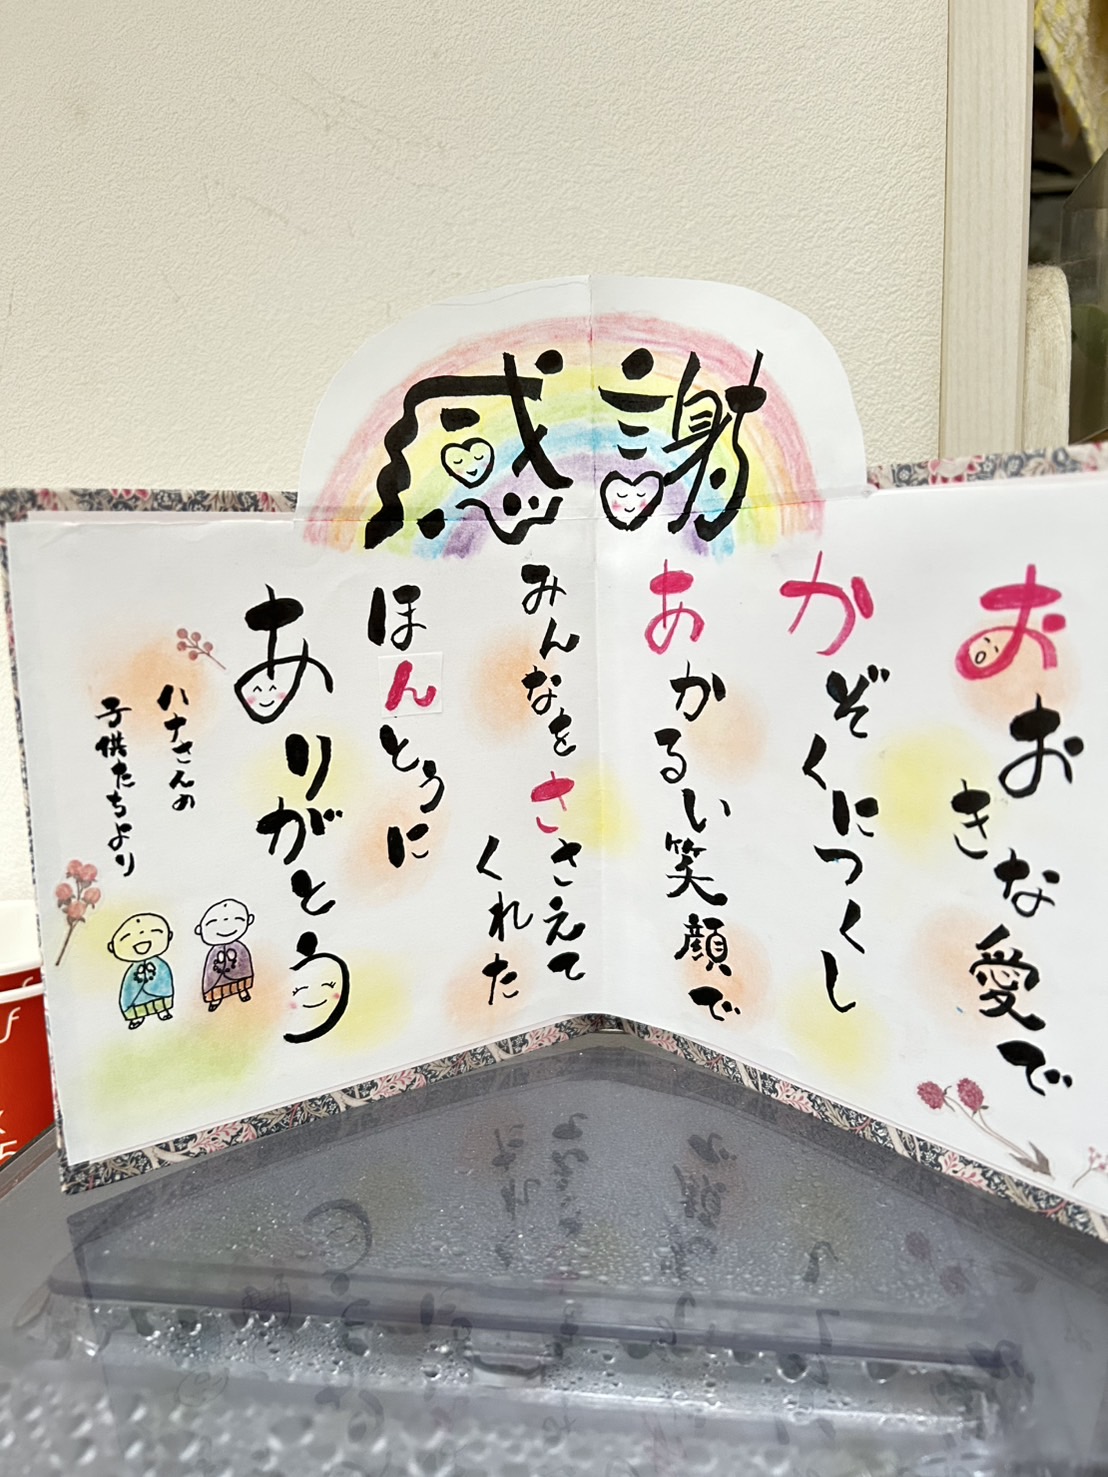 感謝
おおきな愛で
かぞくにつくし
あかるい笑顔で
みんなをささえて
くれた
ほんとうに
ありがとう
ハナさんの
子供たちより